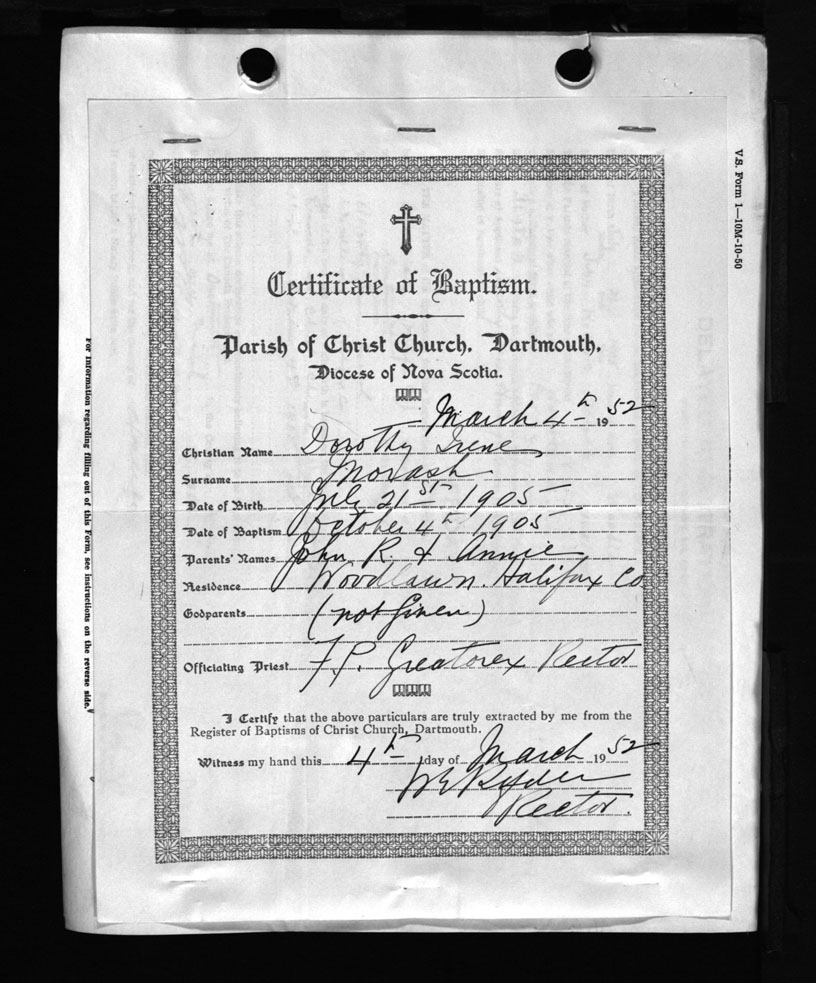 V.S. Form 1—10M-10-50
Certificate of Baptism.
Parish of Christ Church, Dartmouth,
Diocese of Nova Scotia.
March 4th 1952
Christian Name Dorothy Irene
Surname Morash
Date of Birth July 21st 1905
Date of Baptism October 4th 1905
Parents' Names John R. & Annie
Residence Woodlawn. Halifax Co
Godparents (not given)
Officiating Priest F.P. Greatorex Rector
I Certify that the above particulars are truly extracted by me from the
Register of Baptisms of Christ Church, Dartmouth.
Witness my hand this 4th day of March 1952
Rector.
For information regarding filling out of this Form, see instructions on the reverse side.